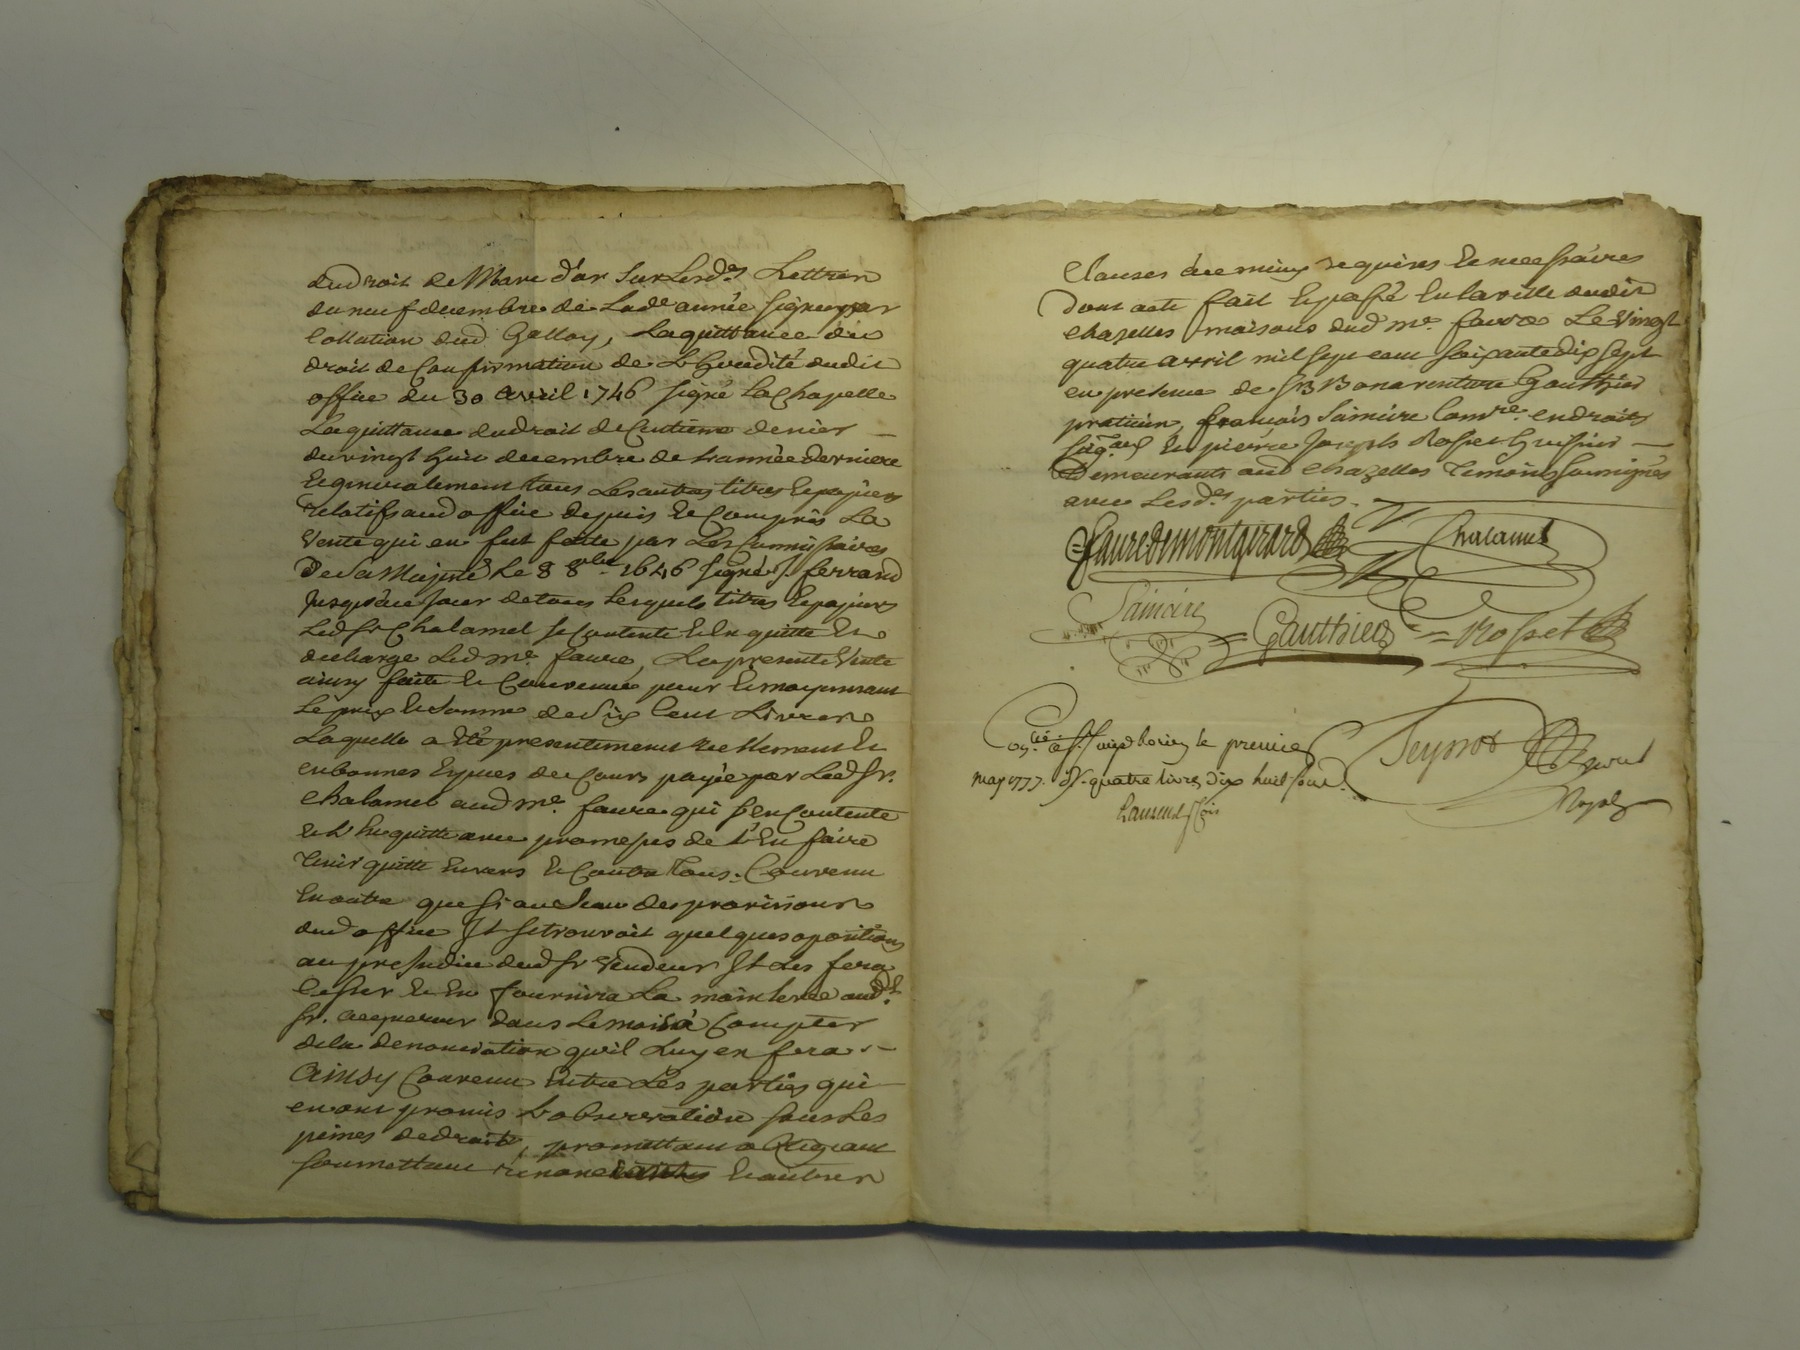 du droit de Marc d'or sur lesd.es Lettres
du neuf decembre de lad.e année signée par
Collation dud Galloy, La quittance du
droit de Confirmation de L'heredité dudit
office du 30 avril 1746 signé La Chapelle
La quittance du droit de Centieme denier —
du vingt huit decembre de L'année derniere
Et generalement tous Les autres titres Et papiers
relatifs aud office depuis Et Compris La
Vente qui en fut faite par Les Commissaires
De Sa Majesté Le 8 8bre 1646 signé ferrand
jusqu'au jour de tous lesquels titres Et papiers
Led Sr Chalamel se Contente Et En quitte Et
decharge Led me. faure, La presente Vente
ainsy faite Et Convenue pour Et moyennant
Le prix Et somme de Six Cent Livres
Laquelle a Eté presentement reellement Et
en bonnes Especes de Cours payée par Led Sr.
Chalamel aud me. faure qui s'en Contente
Et L'En quitte avec promesses de L'En faire
tenir quitte Envers Et Contre tous. Convenu
En outre que si au Sceau des provisions
dud office Il se trouvoit quelques opositions
au prejudice dud Sr Vendeur Il Les fera
Cesser Et En fournira La mainlevée aud.t
Sr. acquereur dans Le mois à Compter
de la denonciation qu'il Luy en fera. —
Ainsy Convenu Entre Les parties qui —
en ont promis L'observation sous Les
peines de droit, promettant obligeant
soumettant renonciants Et autres
Clauses à ce mieux requises Et necessaires
Dont acte fait Et passé En la ville dudit
Chazelles maisons dud me. faure Le Vingt
quatre avril mil sept cent soixante dix sept
en presence de Sr Bonaventure Gauthier
praticien, francois Saimire en droits
Et pierre Joseph Rosset huissier —
Demeurants aud Chazelles temoins soussignés
avec Lesd.es parties.
=faure de montgirard Chalamel
Saimire = Gauthier = Rosset
Con.lé à St. le premier
may 1777. R. quatre livres dix huit sous.
Teyssot